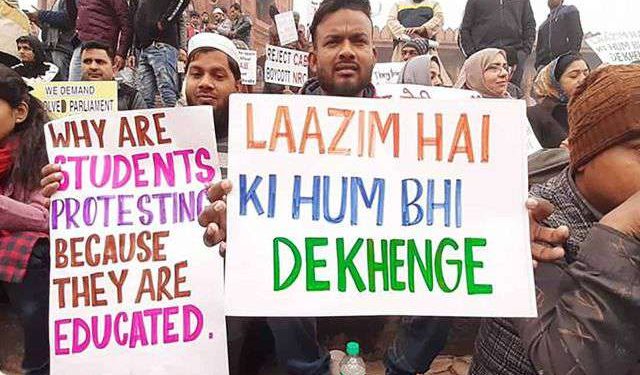 WHY ARE
STUDENTS
PROTESTING
BECAUSE
THEY ARE
EDUCATED.
LAAZIM HAI
KI HUM BHI
DEKHENGE
WE DEMAND
PARLIAMENT
REJECT CAA
BOYCOTT NRC
REJECT